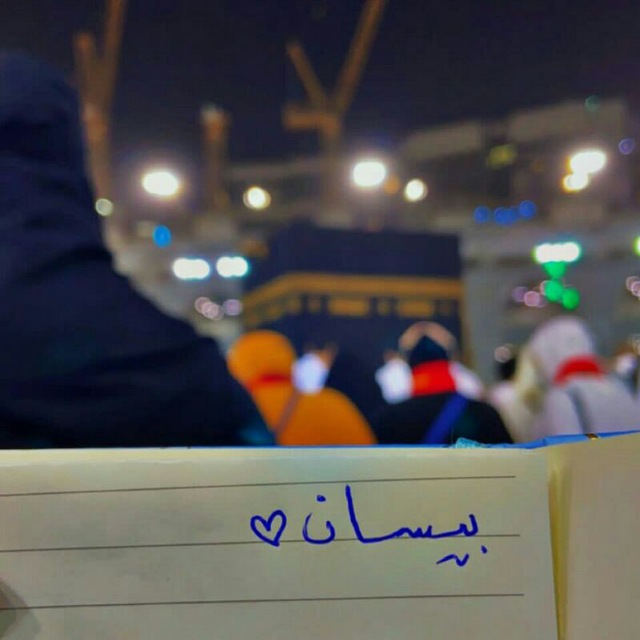 بيسان ♡